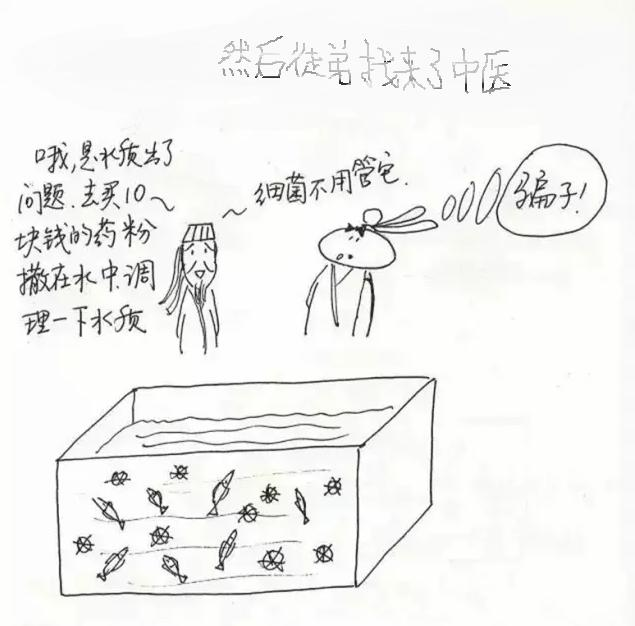 然后徒弟找来了中医
哦,是水质出了
问题.去买10
块钱的药粉
撒在水中,调
理一下水质
细菌不用管它.
骗子!